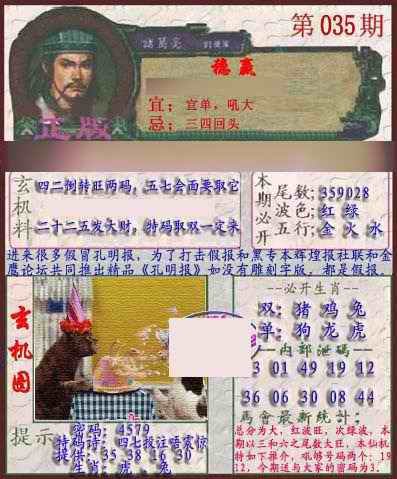 第035期
諸葛亮
稳赢
宜；宜单，吼大
忌；三四回头
正版
玄机料
四二倒转旺两码，五七会面要取它
二十二五发大财，特码取双一定来
本期必开
尾数；359028
波色；红 绿
五行；金 火 水
进来很多假冒孔明报，为了打击假报和黑专本辉煌报社联和金
鹰论坛共同推出精品《孔明报》如没有雕刻字版，都是假报。
玄机图
--必开生肖--
双：猪 鸡 兔
单：狗 龙 虎
--内部泄码--
03 01 49 19 12
36 06 30 08 44
馬會最新統計：
总分为大，红波旺，次绿波，本
期以三和六之尾数大旺，本仙机
特如下推介，吼够号码两个：19
12，今期送与大家的密码为3.
提示
密码：4579
特码诗：四七投注唔震惊
提供：35 38 16 30
生肖：虎、兔